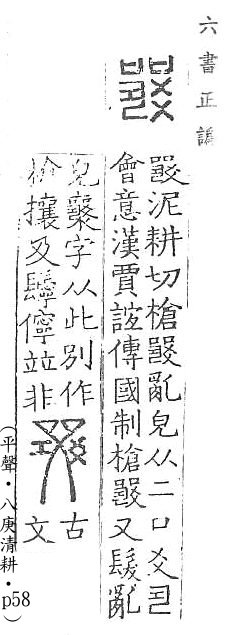 六書正譌
𤕦泥耕切槍𤕦亂皃从二口爻
會意漢賈誼傳國制槍𤕦又髮亂
皃襄字从此別作
槍攘及鬡儜竝非
古
文
(平聲・八庚清耕・p58)